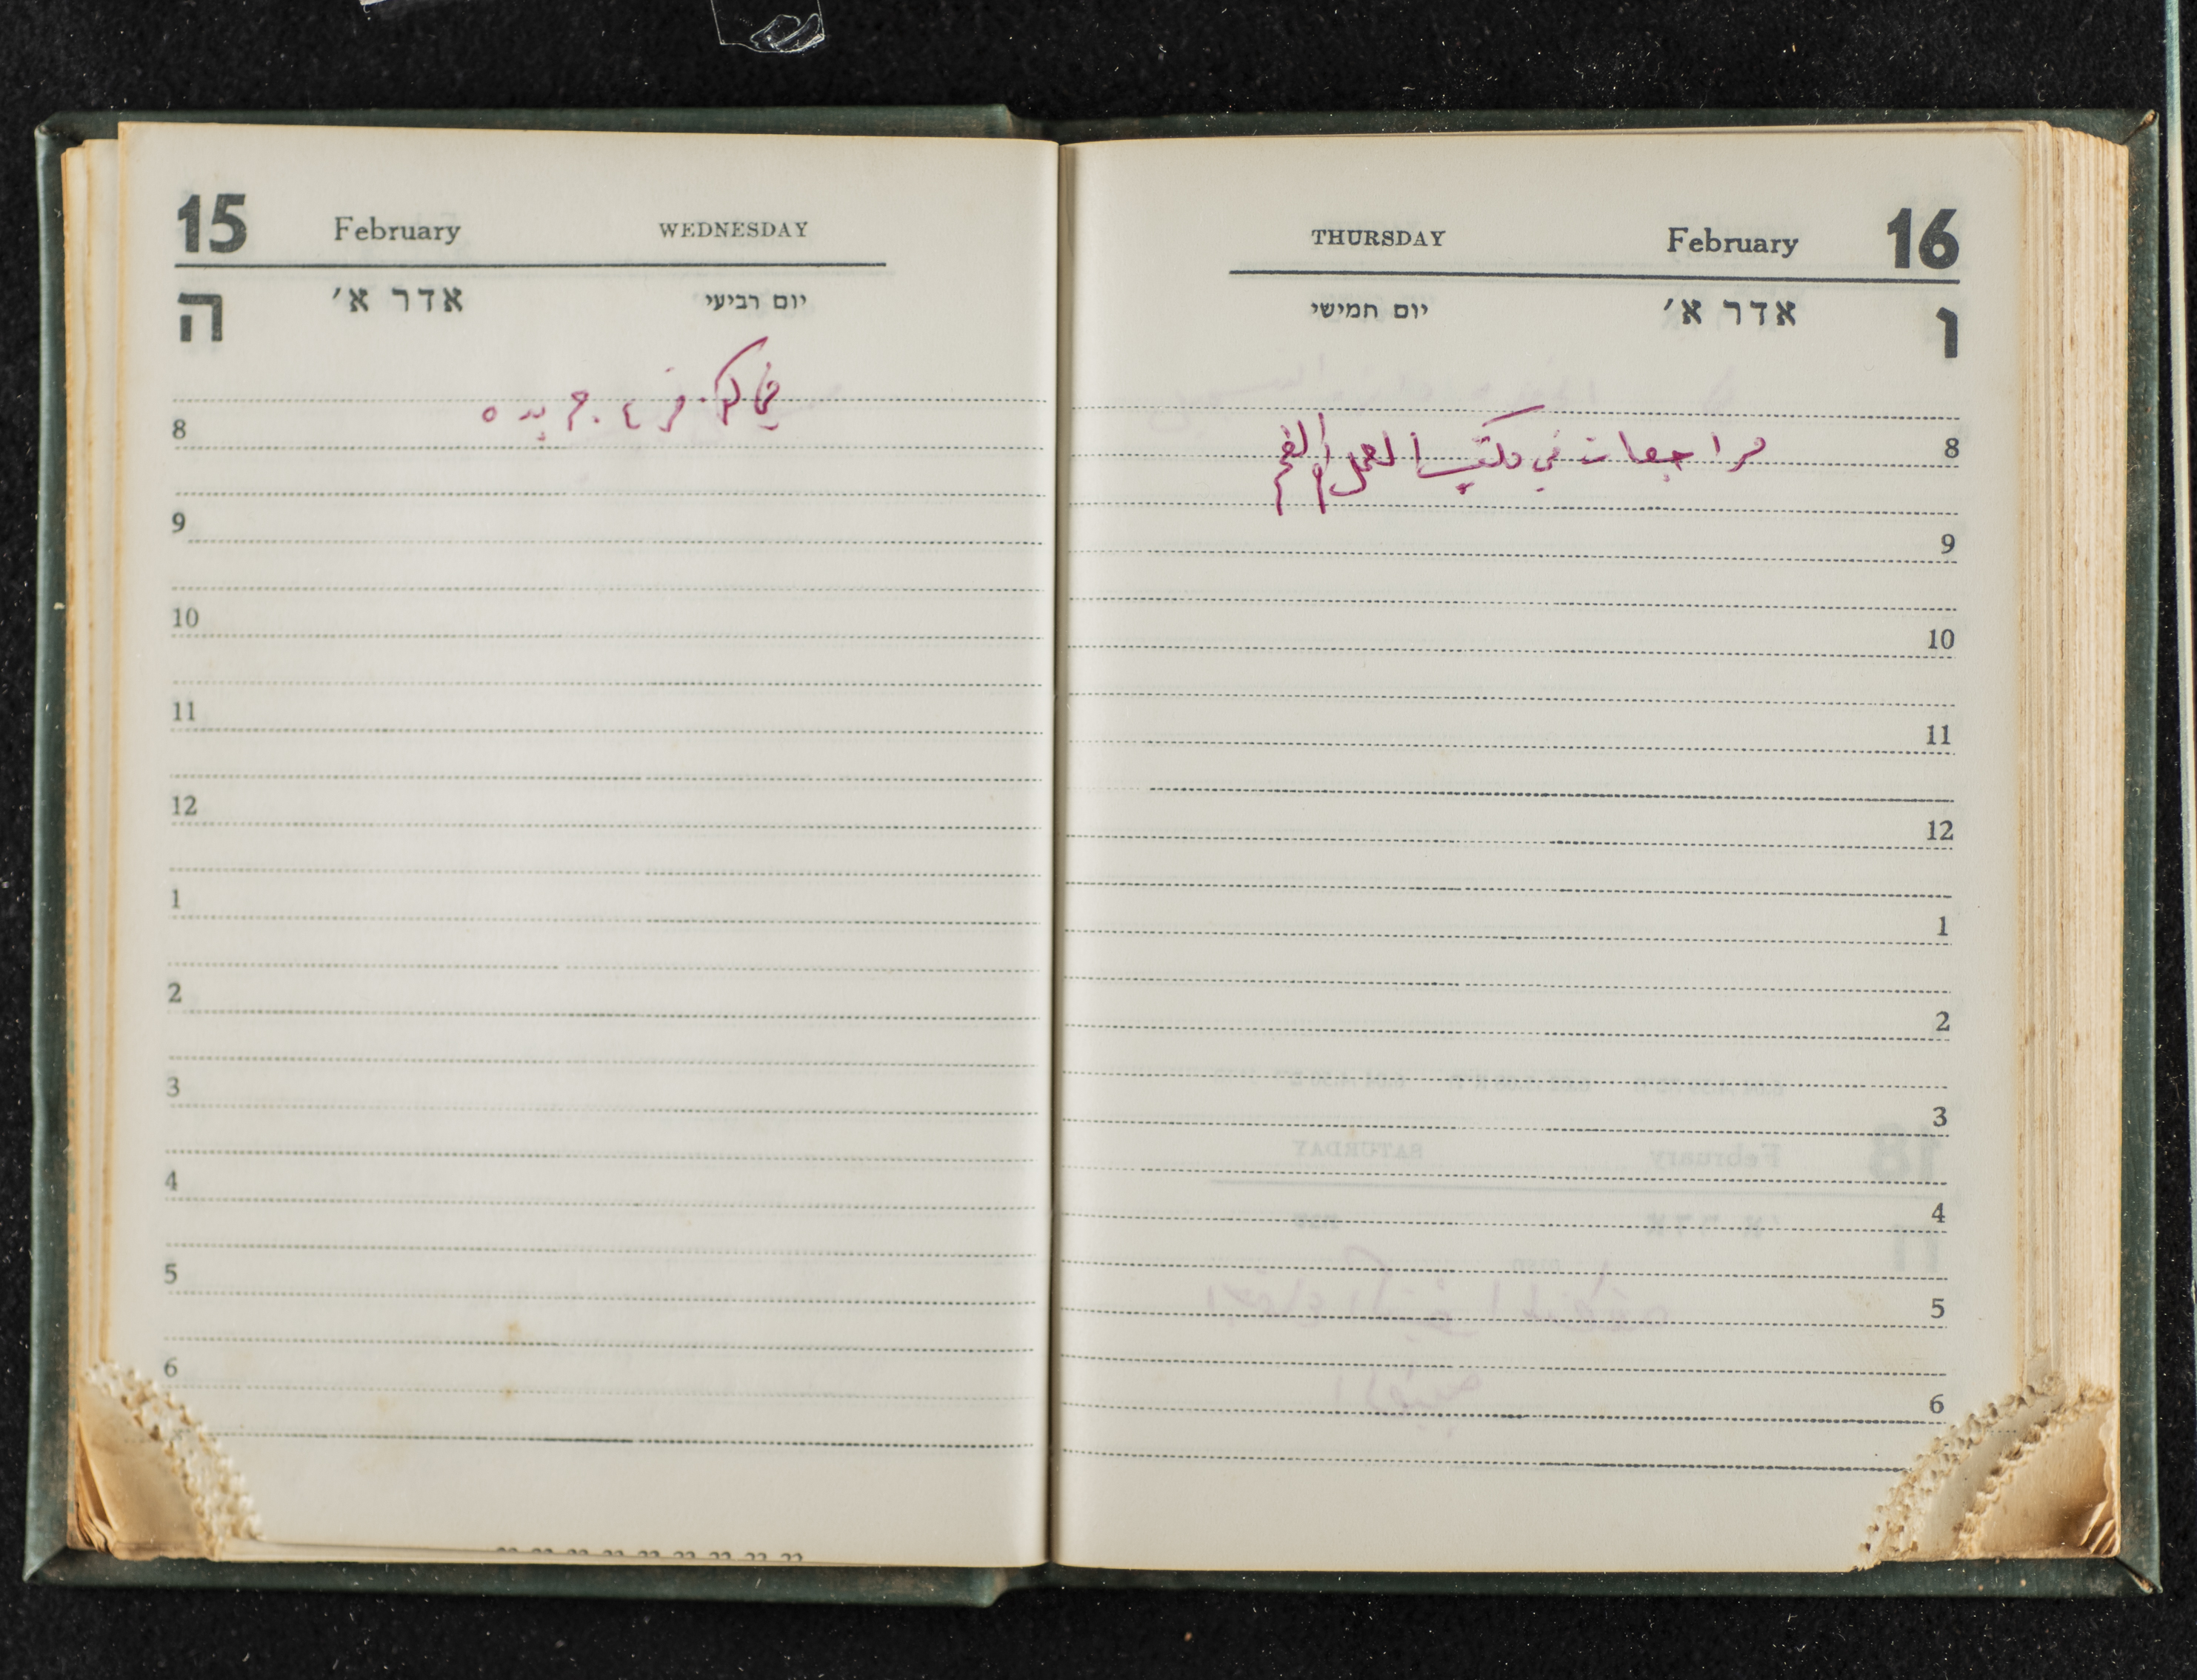 15 February WEDNESDAY
ה אדר א׳ יום רביעי
8
9
10
11
12
1
2
3
4
5
6
THURSDAY February 16
יום חמישי אדר א׳ ו
مراجعات في مكتب العمل
8
9
10
11
12
1
2
3
4
5
6